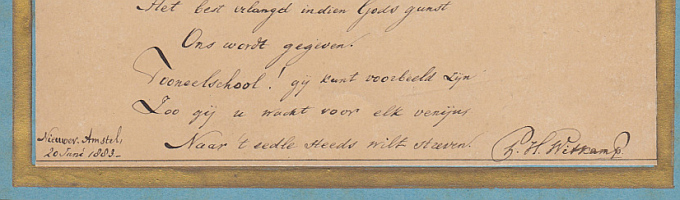 Het best erlangd indien Gods gunst
Ons wordt gegeven.
Tooneelschool! gij kunt voorbeeld zijn
Zoo gij u wacht voor elk venijn,
Naar 't eedle steeds wilt streven.
Nieuwer. Amstel,
20 Juni 1883.-
P. H. Witkamp.